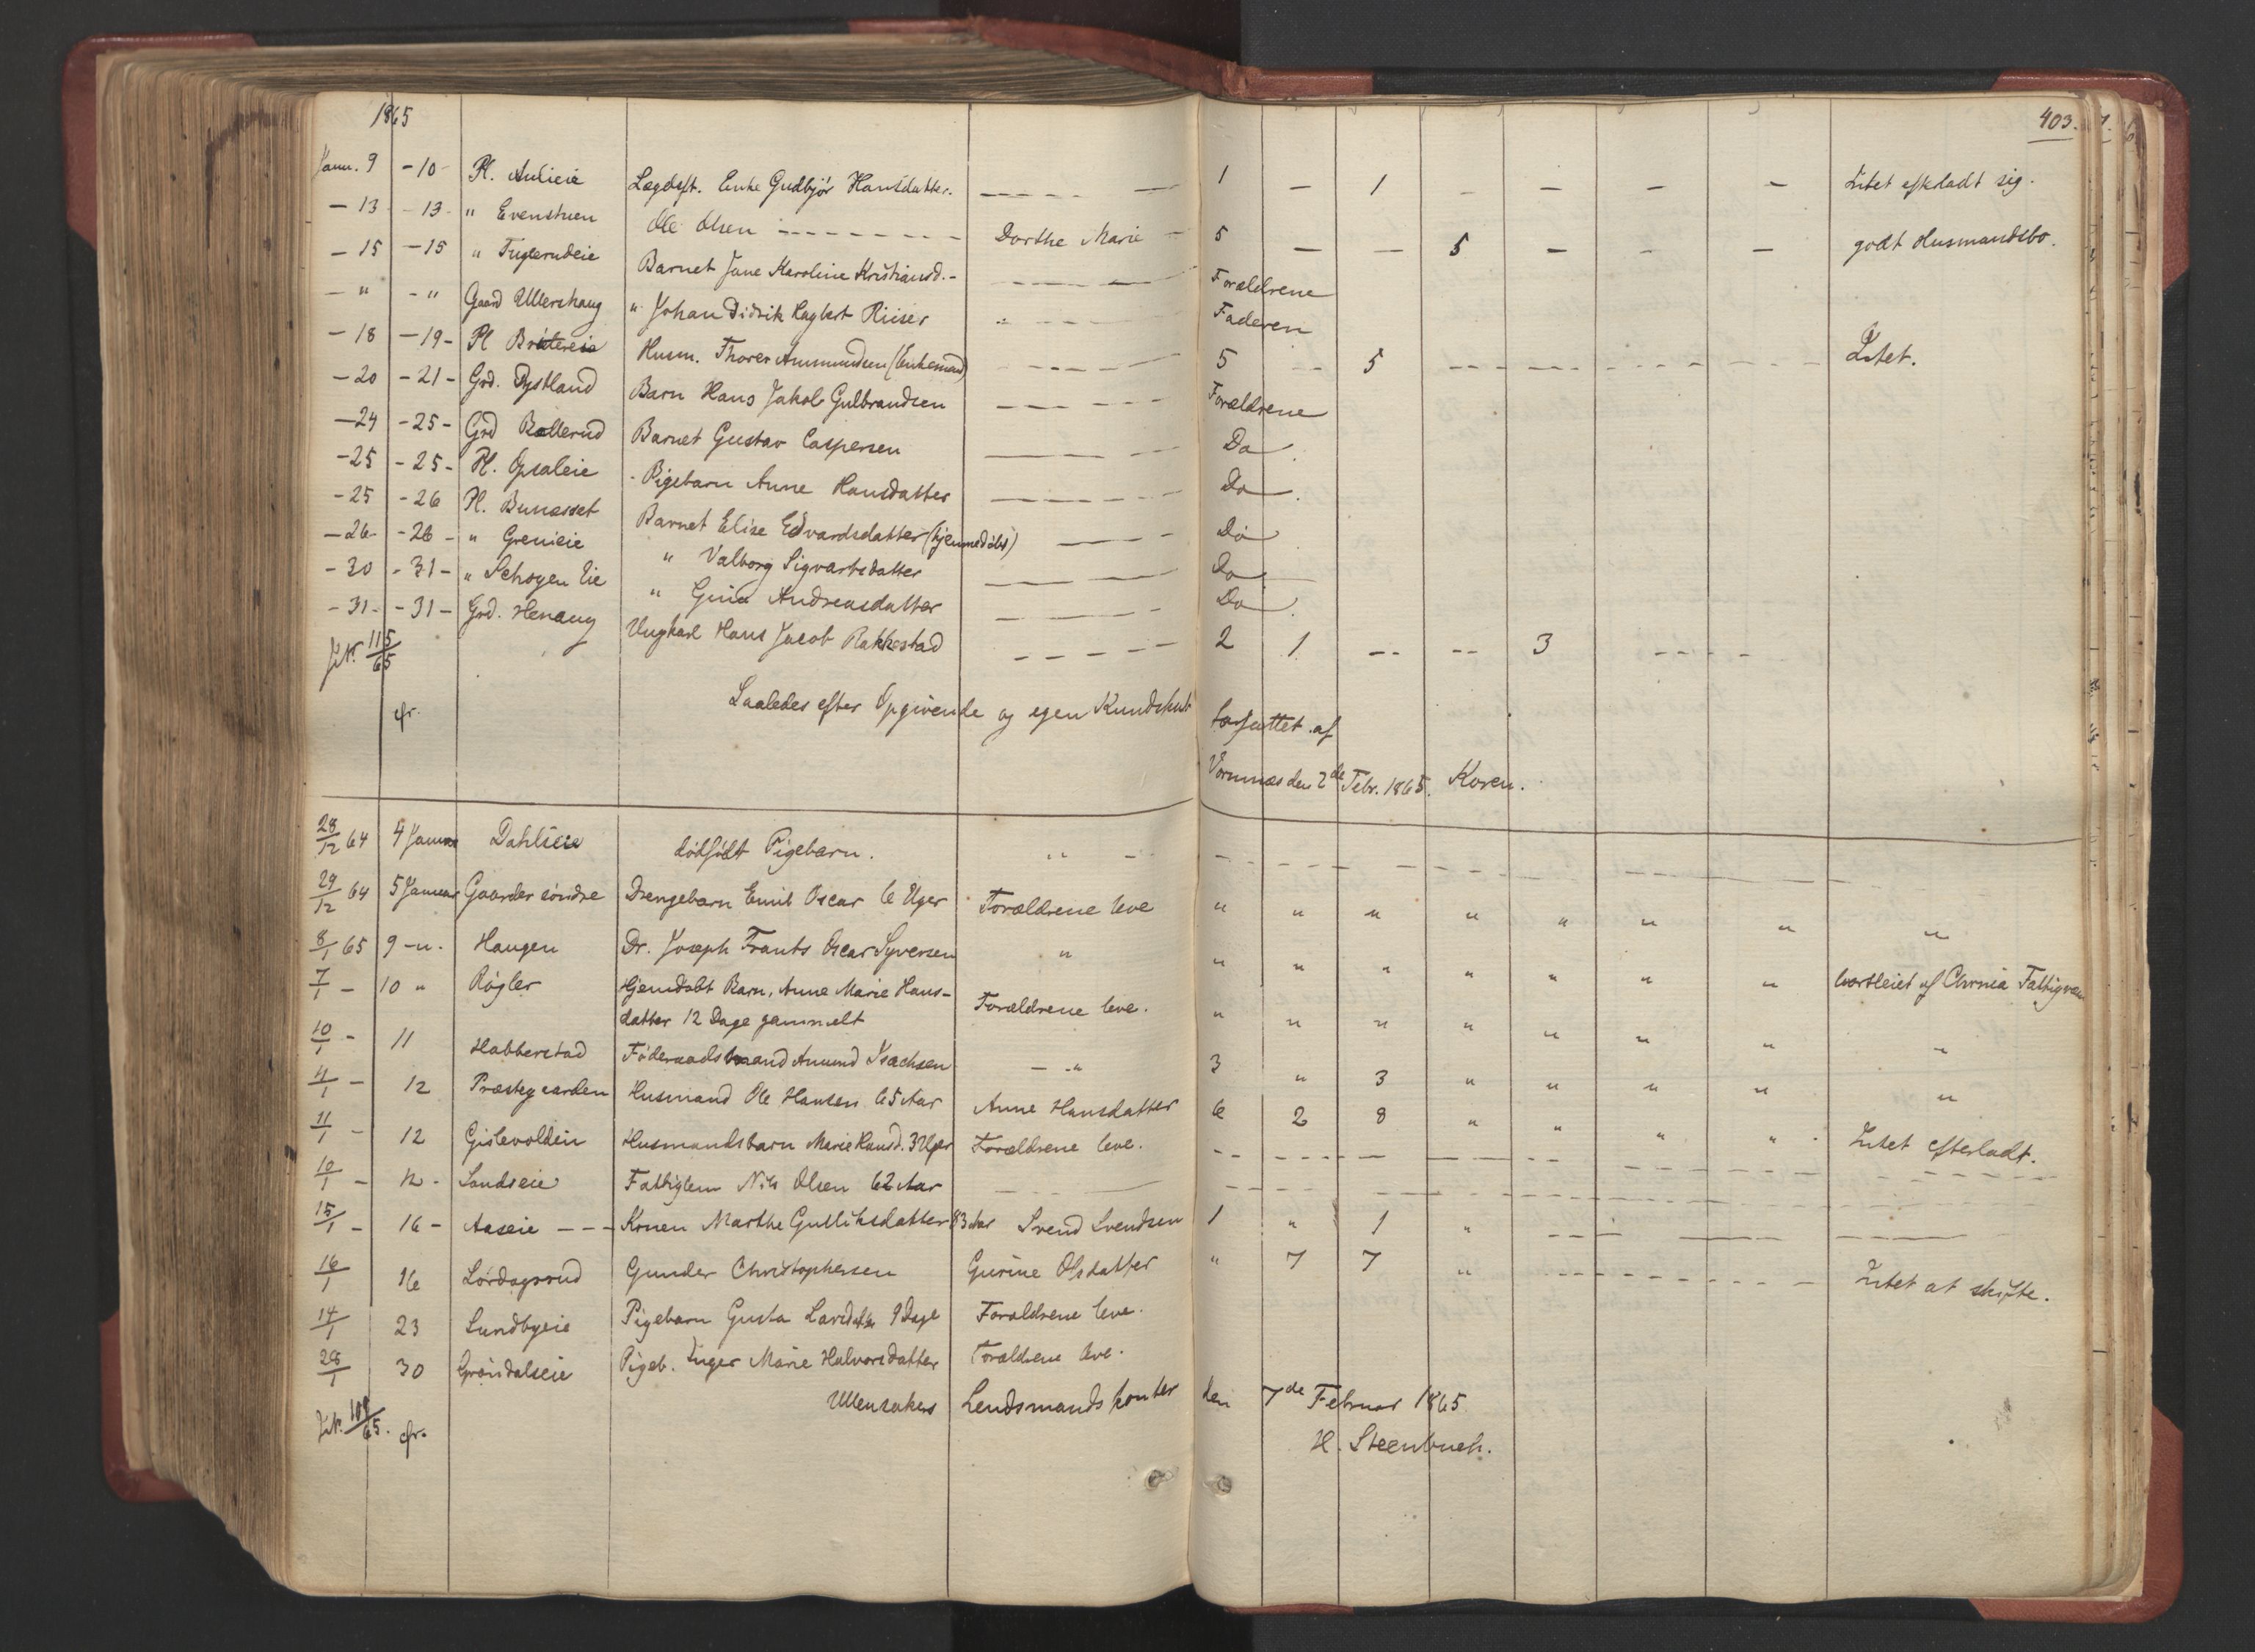 1865 403.
Janu. 9 - 10 - Pl. Aulieie Lægdeft. Enke Gudbjør Hansdatter. — — — 1 — 1 — — — — Intet efterladt sig.
- 13 - 13 - " Evenstuen Ole Olsen - - - - Dorthe Marie - 5 — — 5 — — — godt Husmandsbo.
- 15 - 15 " Fuglerudeie Barnet Jane Karoline Kristiansd. - — — — Forældrene
- " - " Gaard Ullershaug " Johan Didrik Ragbert Riiser — — — Faderen
- 18 - 19 - Pl Husm. Thorer Ammundsen (Enkemand) — — — 5 -- 5 — — — — — Intet.
- 20 - 21 - Grd. Rystland Barn Hans Jakob Gulbrandsen — — — Forældrene
- 24 - 25 - Grd Bøllerud Barnet Gustav Caspersen — — — Do
- 25 - 25 - Pl. Opsaleie - Pigebarn Anne Hansdatter — — — Do.
- 25 - 26 Pl. Bunæsset Barnet Elise Edvardsdatter (hjemmedøbt) — — Do
- 26 - 26 - " Grenieie " Valborg Sigvartsdatter — — — Do
- 30 - 31 - " Schøyen Eie " Gina Andreasdatter — — — Do.
- 31 - - 31 - Grd. Henaug Ungkarl Hans Jacob Rakkestad — — — 2 1 -- -- 3 - - - -
JN. 115/65
cfr. Saaledes efter Opgivende og egen Kundskab forfattet af
Vormnæs den 2de Febr. 1865. Koren.
28/12 64 4 Januar Dahlseie dødfødt Pigebarn. " - - - - -
29/12 64 5 Januar Gaarder søndre Drengebarn Emil Oscar 6 Uger Forældrene leve " " " " " " " "
8/1 65 9 - " - Haugen Dr. Joseph Frants Oscar Syversen " " " " " " " " bortleiet af Chrnia Fattigvæsen
7/1 - 10 " Røgler Hjemdøbt Barn, Anne Marie Hans-
datter 12 Dage gammelt Forældrene leve. " " " " " " " "
10/1 - 11 Habberstad Føderaadsmand Amund Isachsen - " 3 " 3 " " " " "
11/1 - 12 Præstegaarden Husmand Ole Hansen 65 Aar Anne Hansdatter 6 2 8 " " " " Intet efterladt.
11/1 - 12 Gislevolden Husmandsbarn Marie Hansd. 3 Uger Forældrene leve. — — — —
10/1 - 12 - Sandseie Fattiglem Nils Olsen 62 Aar — — — —
15/1 - 16 - Aaseie - - - Konen Marthe Gulliksdatter 83 Aar Svend Svendsen 1 " 1 " — — —
16/1 16 Lørdagsrud Gunder Christophersen Gurine Olsdatter " 7 7 " - - - - Intet at skifte.
14/1 23 Lundbyeie Pigebarn Gusta Larsdatter 9 Dage Forældrene leve.
28/1 30 Grøndalseie Pigeb. Inger Marie Halvorsdatter Forældrene leve.
Ullensakers Lendsmandskontor den 7de Februar 1865
JN. 109/65. cfr. H. Steenbuch.